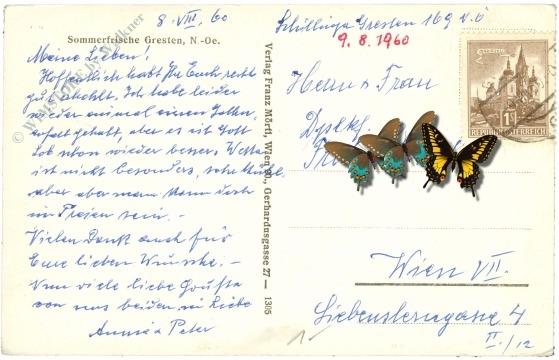 8. VIII. 60
Sommerfrische Gresten, N.-Oe.
Meine Lieben!
Hoffentlich habt Ihr Euch recht
gut erholt. Ich habe leider
wieder einmal einen Gallen-
anfall gehabt, aber es ist Gott
Lob schon wieder besser. Wetter
ist nicht besonders, sehr kühl
aber man kann doch
im Freien sein. -
Vielen Dank auch für
Eure lieben Wünsche. -
Nun viele liebe Grüße
von uns beiden in Liebe
Annie & Peter
Verlag Franz Mörtl, Wien, Gerhardusgasse 27 — 1305
Gresten 169 N.Ö
9. 8. 1960
Herrn & Frau
Dyplkf.
Wien VII.
4
II./12
REPUBLIK ÖSTERREICH
© Webstore by Wolkner